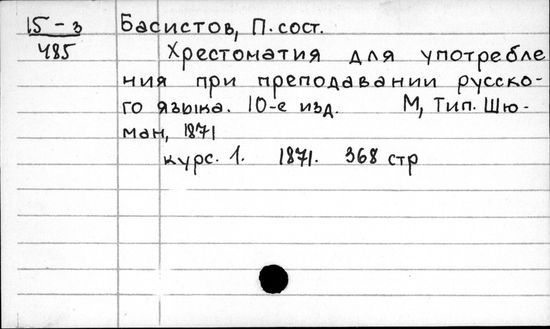 15-3 Басистов, П. сост.
485 Хрестоматия для употребле
ния при преподавании русско-
го языка. 10-е изд. М, Тип. Шю-
ман, 1871
курс. 1. 1871. 368 стр